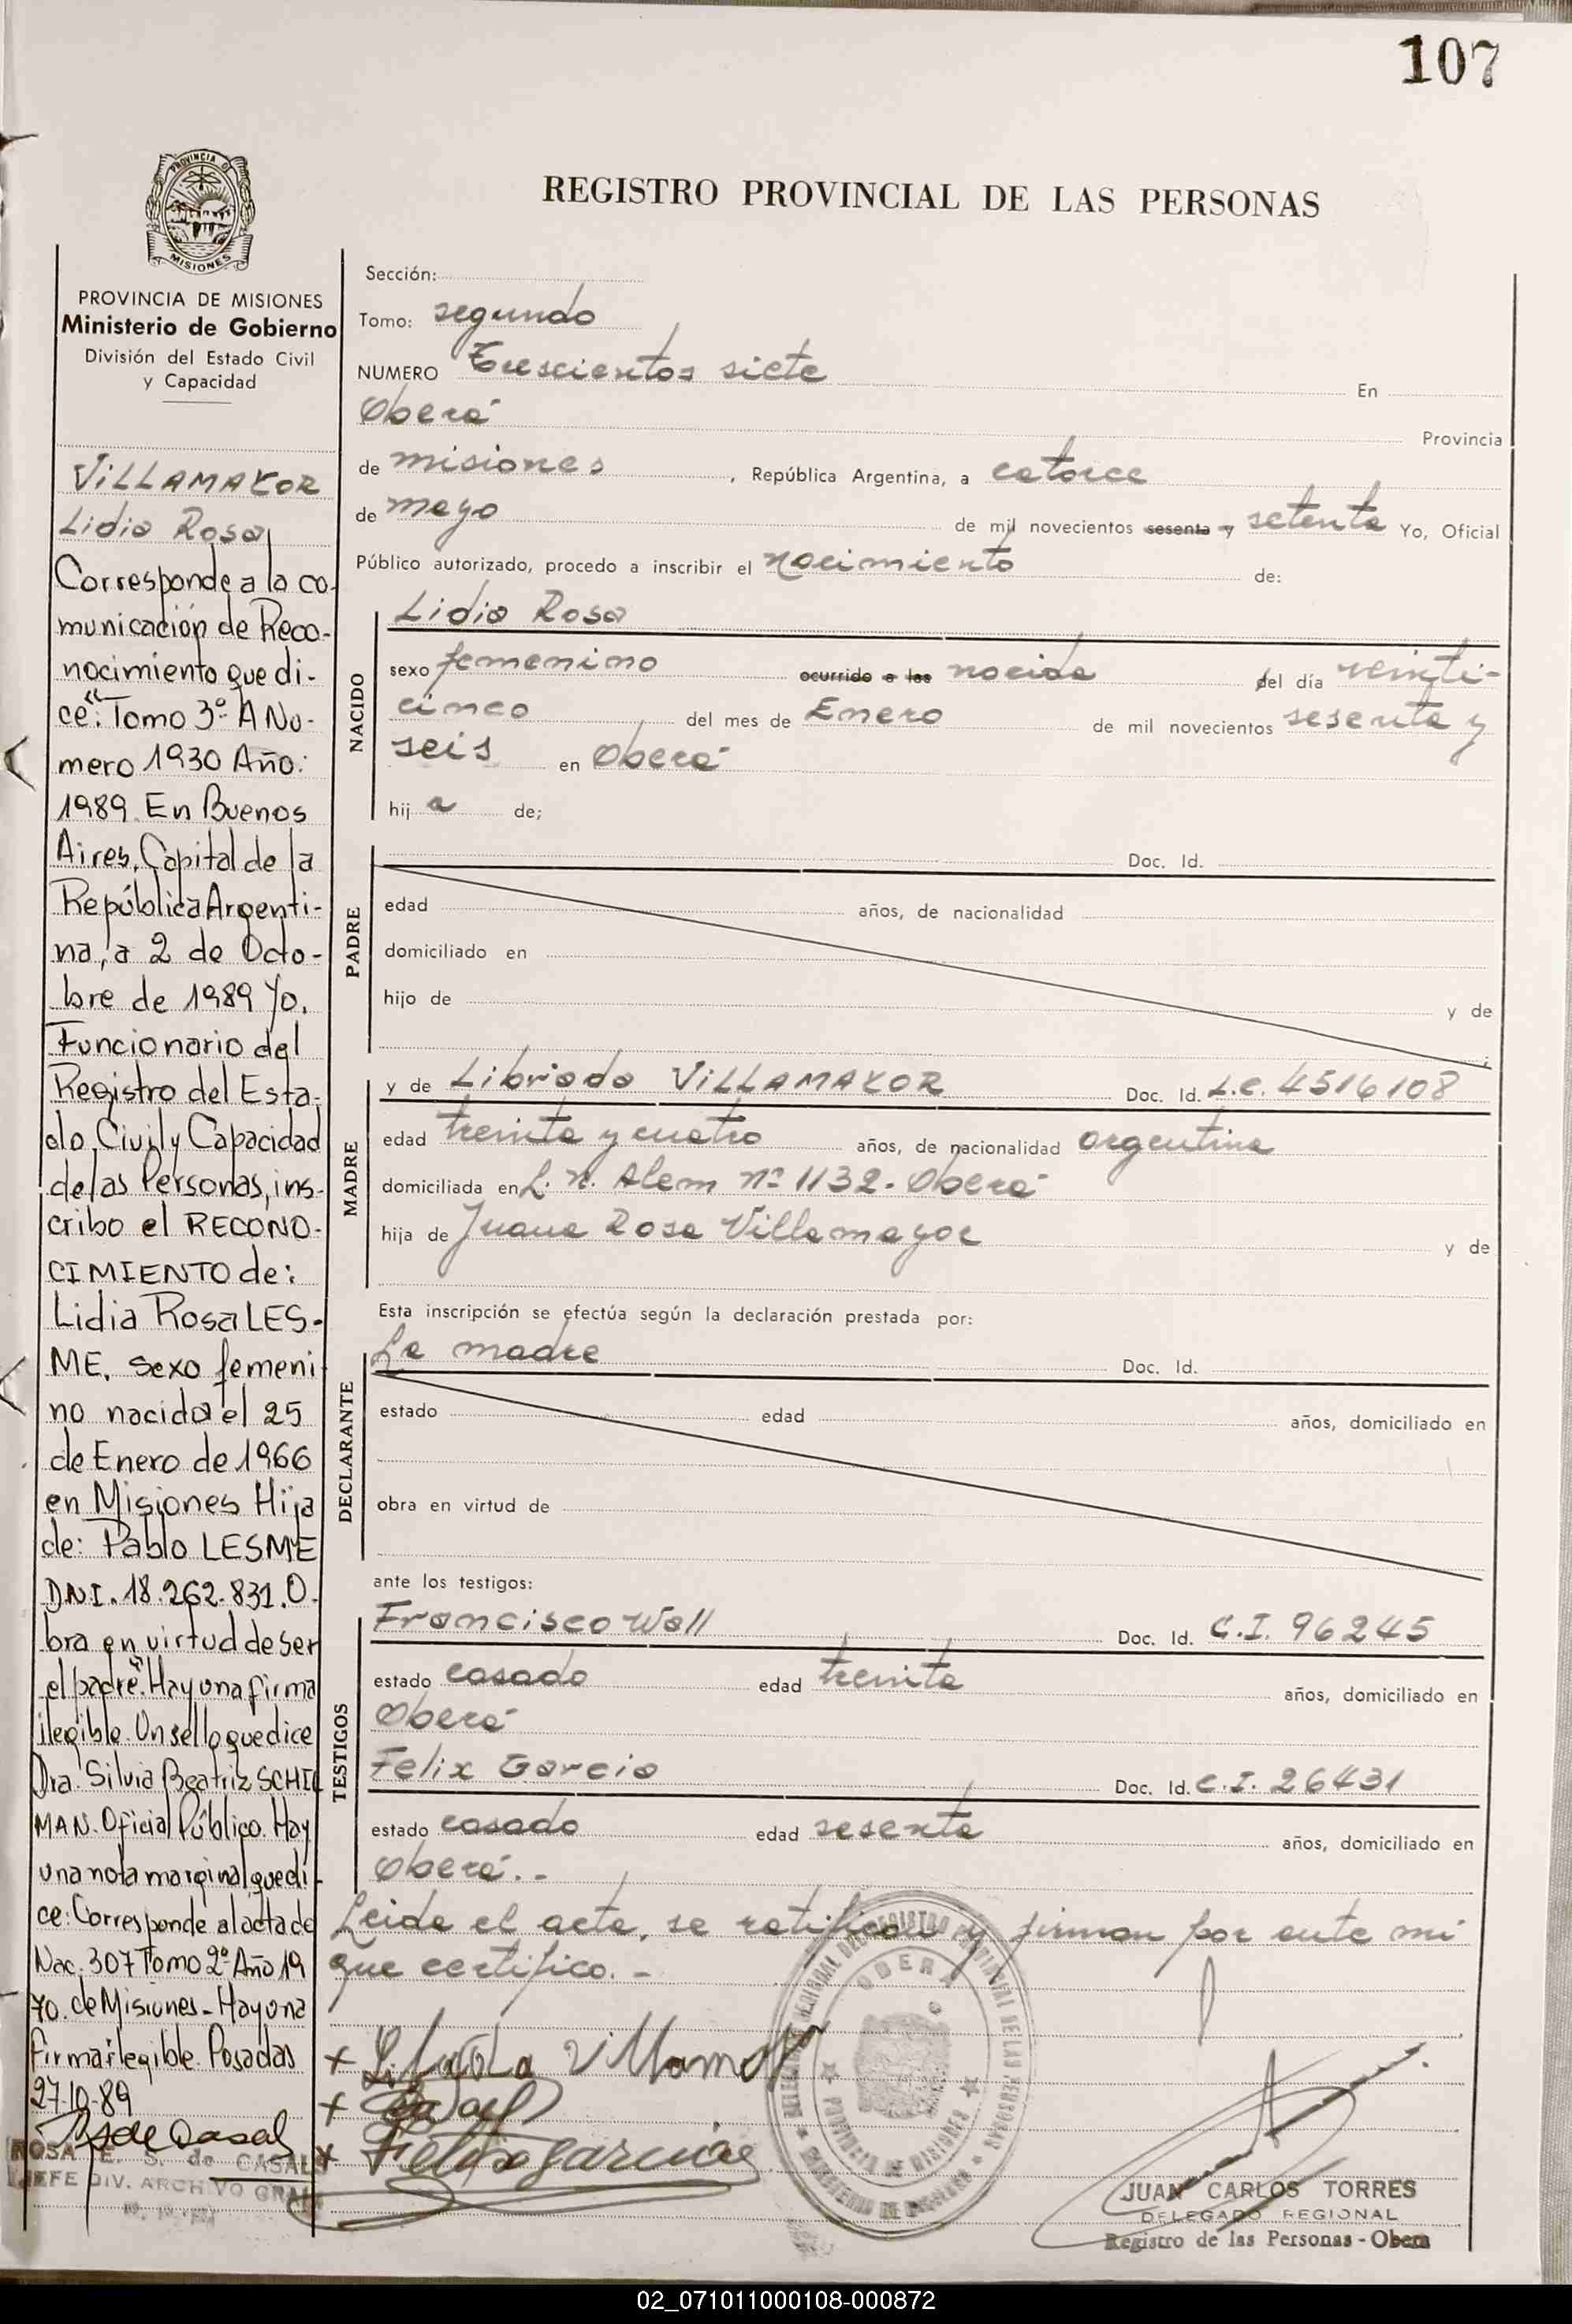 107
PROVINCIA DE
MISIONES
REGISTRO PROVINCIAL DE LAS PERSONAS
PROVINCIA DE MISIONES
Ministerio de Gobierno
División del Estado Civil
y Capacidad
VILLAMAYOR
Lidia Rosa
Corresponde a la co-
municación de Reco-
nocimiento que di-
ce: "Tomo 3º A Nu-
mero 1930 Año:
1989. En Buenos
Aires, Capital de la
República Argenti-
na, a 2 de Octu-
bre de 1989 Yo,
Funcionario del
Registro del Esta-
do Civil y Capacidad
de las Personas, ins-
cribo el RECONO-
CIMIENTO de:
Lidia Rosa LES-
ME, sexo femeni-
no nacida el 25
de Enero de 1966
en Misiones Hija
de: Pablo LESME
DNI. 18.262.831. O-
bra en virtud de ser
el padre". Hay una firma
ilegible. Un sello que dice
Dra. Silvia Beatriz SCHIL
MAN. Oficial Público. Hay
una nota marginal que di-
ce: Corresponde al acta de
Nac. 307 Tomo 2º Año 19
70. de Misiones - Hay una
firma ilegible. Posadas
27-10-89
ROSA E. S. de CASALS
JEFE DIV. ARCHIVO GRAL
Sección:
Tomo: segundo
NUMERO Trescientos siete En
Oberá Provincia
de misiones, República Argentina, a catorce
de mayo de mil novecientos sesenta y setenta Yo, Oficial
Público autorizado, procedo a inscribir el nacimiento de:
NACIDO
Lidia Rosa
sexo femenino ocurrido a las nacida del día veinti-
cinco del mes de Enero de mil novecientos sesenta y
seis en Oberá
hija de;
PADRE
Doc. Id.
edad años, de nacionalidad
domiciliado en
hijo de y de
;
MADRE
y de Librada VILLAMAYOR Doc. Id. L.C. 4516108
edad treinta y cuatro años, de nacionalidad argentina
domiciliada en L. N. Alem nº 1132 - Oberá
hija de Juana Rosa Villamayor y de
Esta inscripción se efectúa según la declaración prestada por:
DECLARANTE
La madre Doc. Id.
estado edad años, domiciliado en
obra en virtud de
ante los testigos:
TESTIGOS
Francisco Wall Doc. Id. C.I. 96245
estado casado edad treinta años, domiciliado en
Oberá
Felix Garcia Doc. Id. C.I. 26431
estado casado edad sesenta años, domiciliado en
Oberá.-
Leida el acta, se ratifican y firman por ante mi
que certifico.-
OBERA
PROVINCIA DE MISIONES
Felix garcia
JUAN CARLOS TORRES
DELEGADO REGIONAL
Registro de las Personas - Obera
02_071011000108-000872